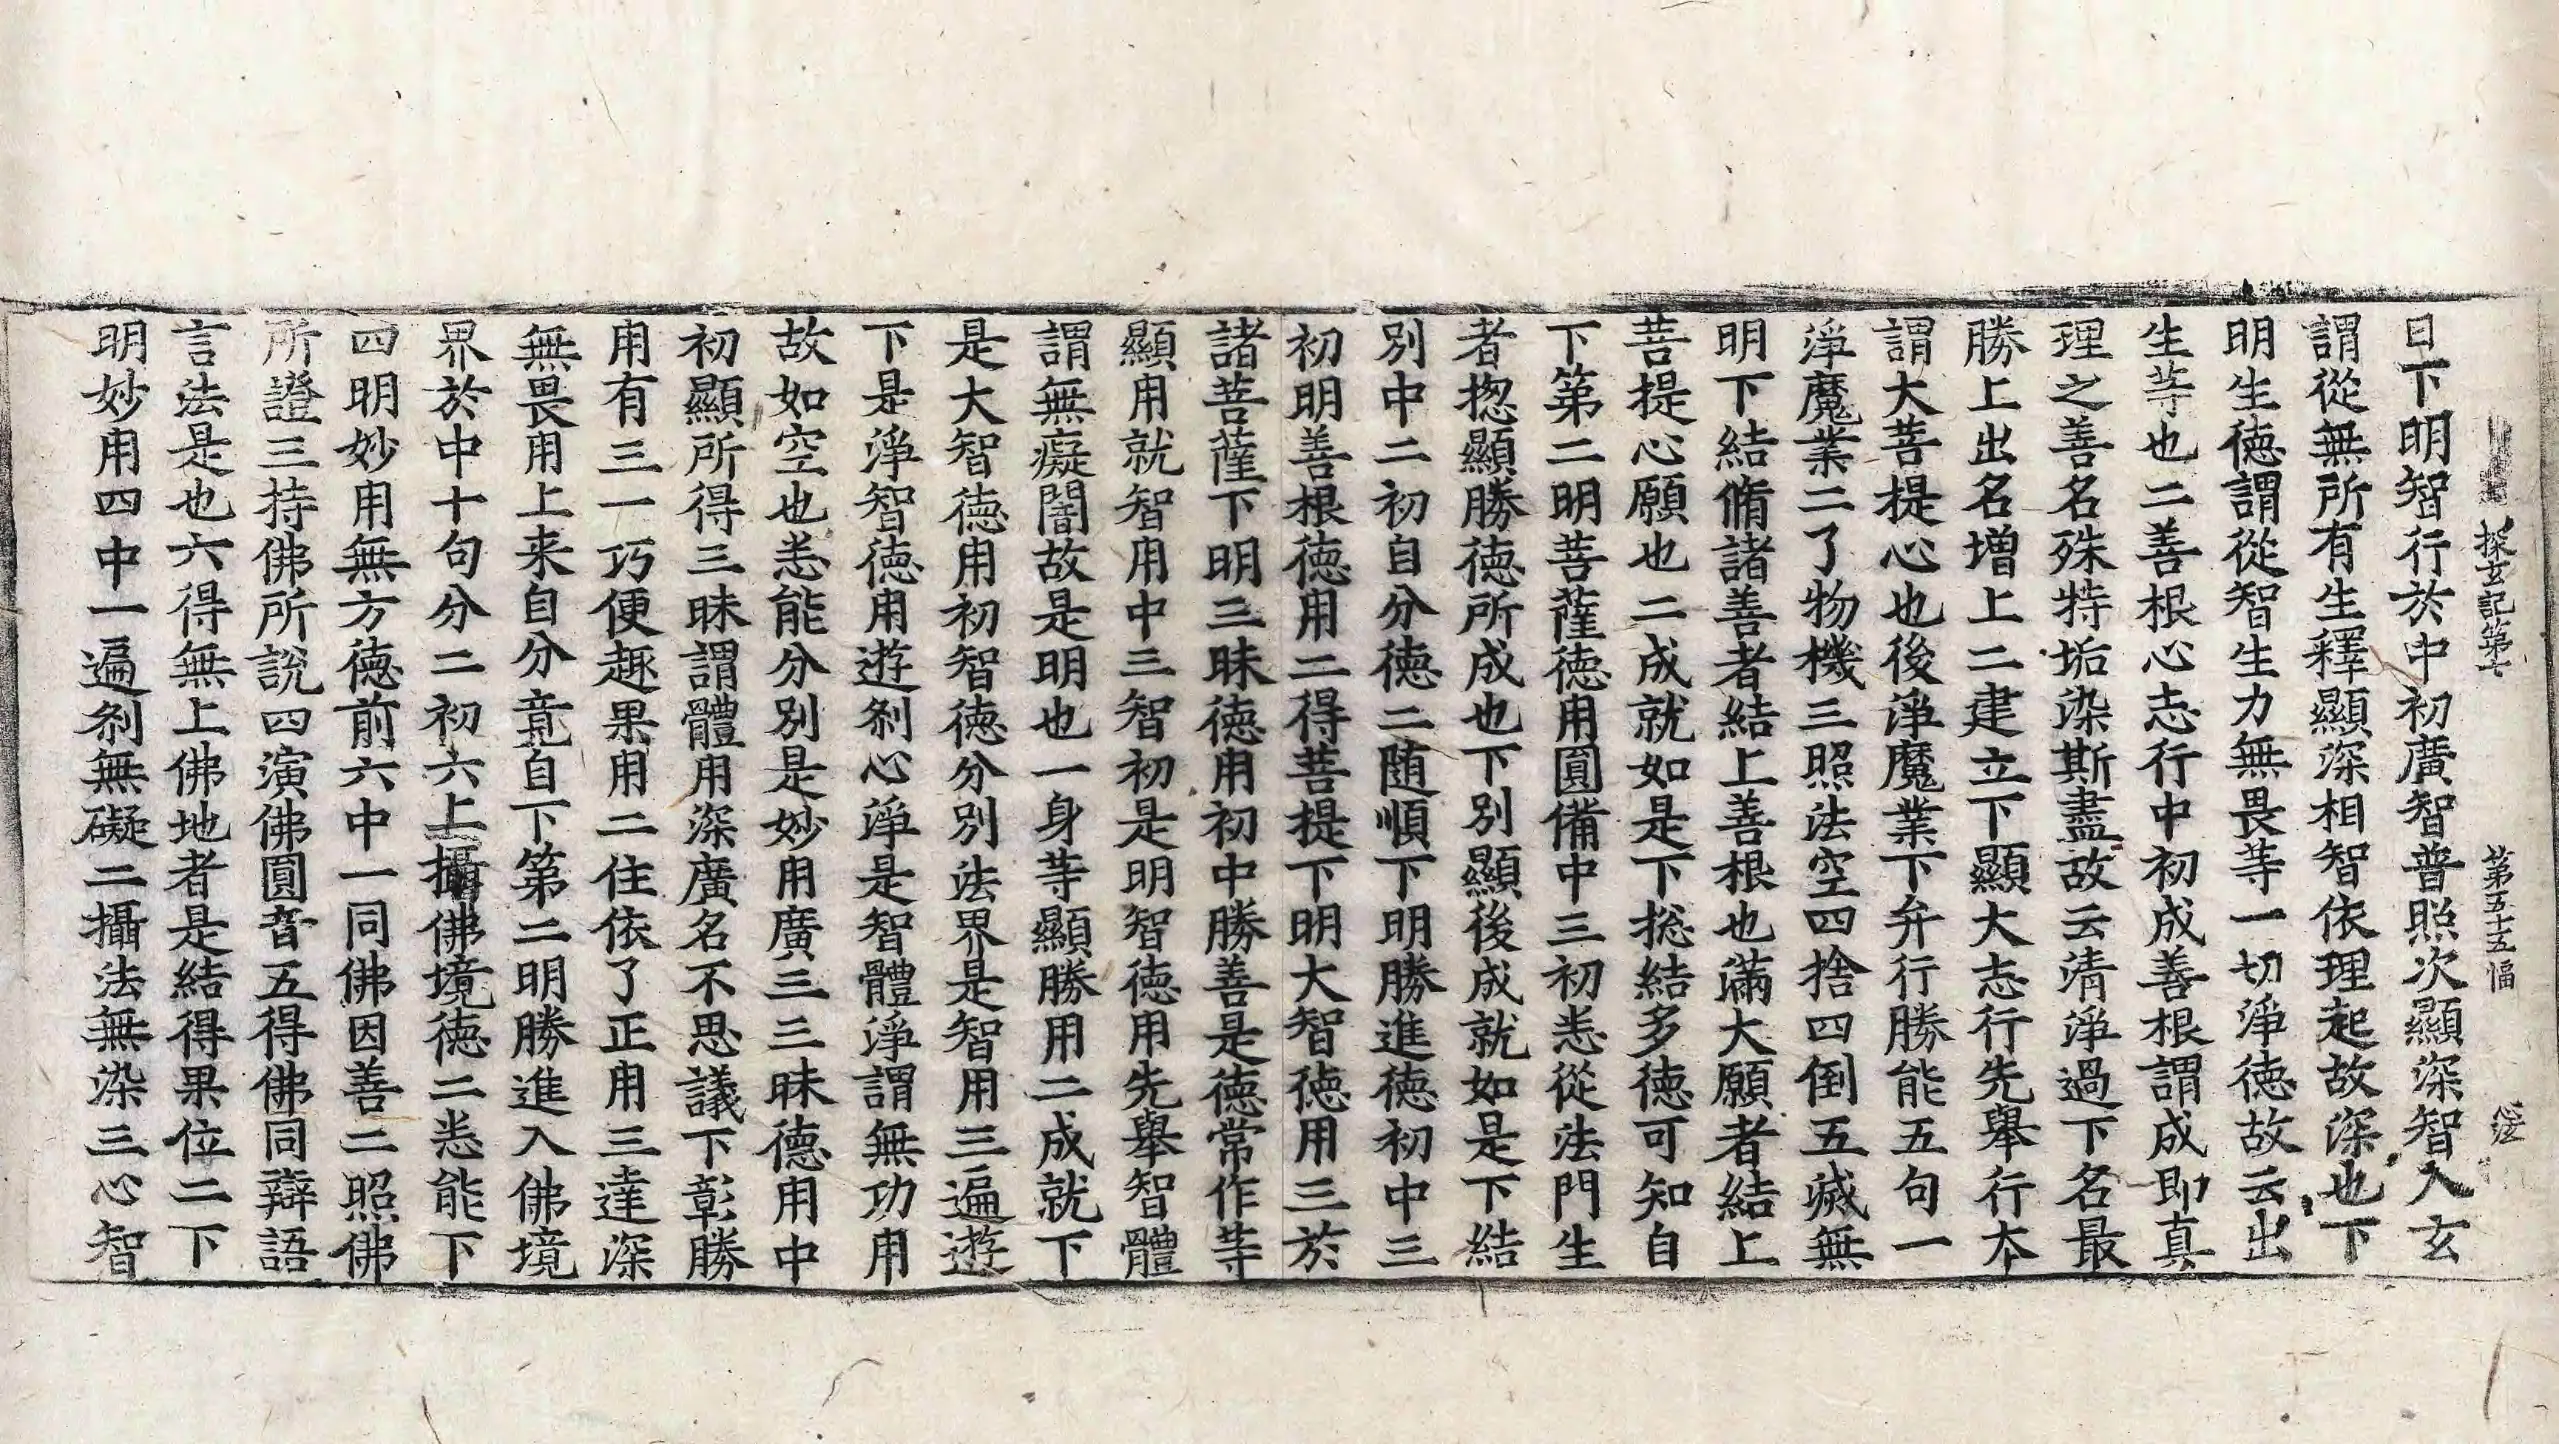 探玄記第七　第五十五幅
日下明智行於中初廣智普照次顯深智入玄
謂從無所有生釋顯深相智依理起故深也下
明生德謂從智生力無畏等一切淨德故云出
生䒭也二善根心志行中初成善根謂成即真
理之善名殊特垢染斯盡故云清淨過下名最
勝上出名增上二建立下顯大志行先舉行夲
謂大菩提心也後淨魔業下弁行勝能五句一
淨魔業二了物機三照法空四捨四倒五滅無
明下結脩諸善者結上善根也滿大願者結上
菩提心願也二成就如是下捴結多德可知自
下第二明菩薩德用圓備中三初悉從法門生
者揔顯勝德所成也下別顯後成就如是下結
別中二初自分德二随順下明勝進德初中三
初明善根德用二得菩提下明大智德用三於
諸菩薩下明三昧德用初中勝善是德常作䒭
顯用就智用中三智初是明智德用先舉智體
謂無癡闇故是明也一身䒭顯勝用二成就下
是大智德用初智德分別法界是智用三遍遊
下是淨智德用遊剎心淨是智體淨謂無功用
故如空也悉能分別是妙用廣三三昧德用中
初顯所得三昧謂體用深廣名不思議下彰勝
用有三一巧便趣果用二住依了正用三達深
無畏用上来自分竟自下第二明勝進入佛境
界於中十句分二初六上攝佛境德二悉能下
四明妙用無方德前六中一同佛因善二照佛
所證三持佛所說四演佛圓音五得佛同辯語
言法是也六得無上佛地者是結得果位二下
明妙用四中一遍剎無礙二攝法無染三心智